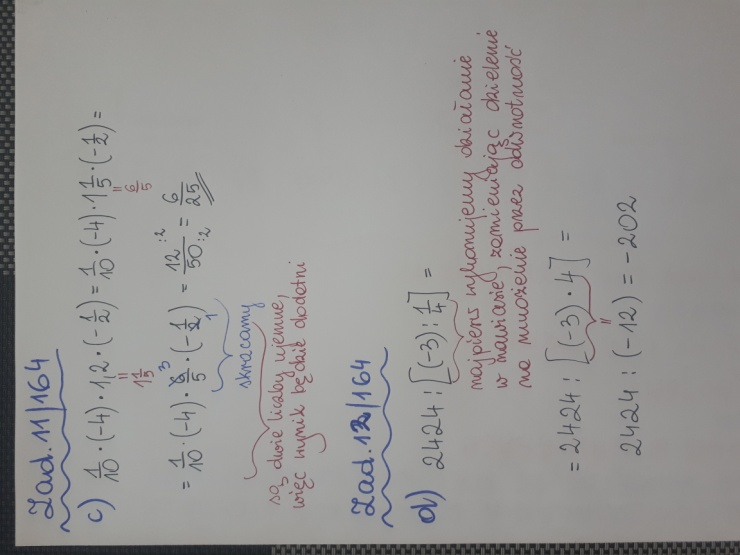 Zad. 11/164
c) 1/10 · (-4) · 1,2 · (-1/2) = 1/10 · (-4) · 1 1/5 · (-1/2) =
= 1 1/5 = 6/5
= 1/10 · (-4) · 6/5 · (-1/2) = 12/50 = 6/25
3 1 :2 :2
skracamy
są dwie liczby ujemne,
więc wynik będzie dodatni
Zad. 12/164
d) 2424 : [(-3) : 1/4] =
najpierw wykonujemy działanie
w nawiasie, zamieniając dzielenie
na mnożenie przez odwrotność
= 2424 : [(-3) · 4] =
=
2424 : (-12) = -202